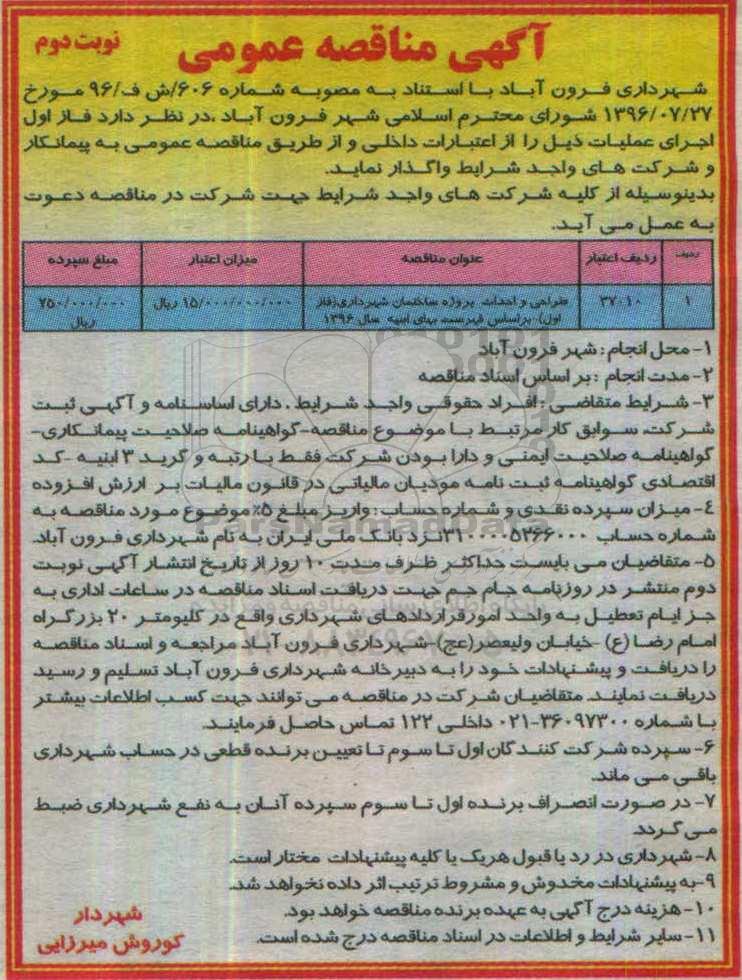 آگهی مناقصه عمومی
نوبت دوم
شهرداری فرون آباد با استناد به مصوبه شماره ۶۰۶/ش ف/۹۶ مورخ
۱۳۹۶/۰۷/۲۷ شورای محترم اسلامی شهر فرون آباد ،در نظر دارد فاز اول
اجرای عملیات ذیل را از اعتبارات داخلی و از طریق مناقصه عمومی به پیمانکار
و شرکت های واجد شرایط واگذار نماید.
بدینوسیله از کلیه شرکت های واجد شرایط جهت شرکت در مناقصه دعوت
به عمل می آید.
ردیف ردیف اعتبار عنوان مناقصه میزان اعتبار مبلغ سپرده
۱ ۳۷۰۱۰ طراحی و احداث پروژه ساختمان شهرداری(فاز ۱۵/۰۰۰/۰۰۰/۰۰۰ ریال ۷۵۰/۰۰۰/۰۰۰
اول) براساس فهرست بهای ابنیه سال ۱۳۹۶ ریال
۱- محل انجام : شهر فرون آباد
۲- مدت انجام : بر اساس اسناد مناقصه
۳- شرایط متقاضی : افراد حقوقی واجد شرایط ، دارای اساسنامه و آگهی ثبت
شرکت، سوابق کار مرتبط با موضوع مناقصه-گواهینامه صلاحیت پیمانکاری-
گواهینامه صلاحیت ایمنی و دارا بودن شرکت فقط با رتبه و گرید ۳ ابنیه -کد
اقتصادی گواهینامه ثبت نامه مودیان مالیاتی در قانون مالیات بر ارزش افزوده
۴- میزان سپرده نقدی و شماره حساب : واریز مبلغ ۵٪ موضوع مورد مناقصه به
شماره حساب ۳۱۰۰۰۰۵۳۶۶۰۰۰ نزد بانک ملی ایران به نام شهرداری فرون آباد.
۵- متقاضیان می بایست حداکثر ظرف مدت ۱۰ روز از تاریخ انتشار آگهی نوبت
دوم منتشر در روزنامه جام جم جهت دریافت اسناد مناقصه در ساعات اداری به
جز ایام تعطیل به واحد امور قراردادهای شهرداری واقع در کلیومتر ۲۰ بزرگراه
امام رضا (ع) خیابان ولیعصر(عج) شهرداری فرون آباد مراجعه و اسناد مناقصه
را دریافت و پیشنهادات خود را به دبیرخانه شهرداری فرون آباد تسلیم و رسید
دریافت نمایند. متقاضیان شرکت در مناقصه می توانند جهت کسب اطلاعات بیشتر
با شماره ۳۶۰۹۷۳۰۰-۰۲۱ داخلی ۱۲۲ تماس حاصل فرمایند.
۶- سپرده شرکت کنندگان اول تا سوم تا تعیین برنده قطعی در حساب شهرداری
باقی می ماند.
۷- در صورت انصراف برنده اول تا سوم سپرده آنان به نفع شهرداری ضبط
می گردد.
۸- شهرداری در رد یا قبول هریک یا کلیه پیشنهادات مختار است.
۹-به پیشنهادات مخدوش و مشروط ترتیب اثر داده نخواهد شد.
۱۰- هزینه درج آگهی به عهده برنده مناقصه خواهد بود.
۱۱- سایر شرایط و اطلاعات در اسناد مناقصه درج شده است.
شهردار
کوروش میرزایی
ParsNamadData